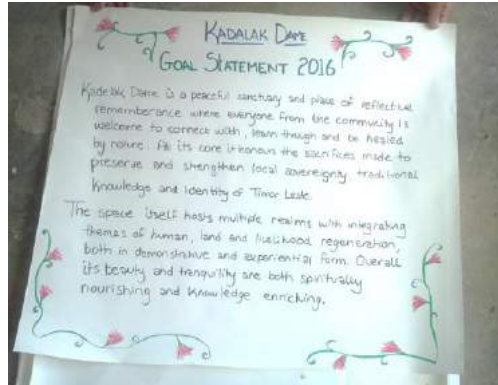 KADALAK DAME
GOAL STATEMENT 2016
Kadalak Dame is a peaceful sanctuary and place of reflective
rememberance where everyone from the community is
welcome to connect with, learn though and be healed
by nature. At its core it honours the sacrifices made to
preserve and strengthen local sovereignty, traditional
knowledge and identity of Timor Leste.
The space itself hosts multiple realms with integrating
themes of human, land and livelihood regeneration,
both in demonstrative and experiential form. Overall
its beauty and tranquility are both spiritually
nourishing and knowledge enriching.